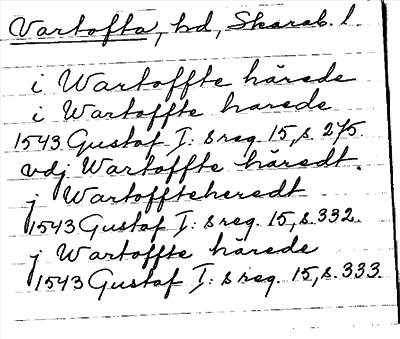 Vartofta, hd, Skarab. l.
i Wartoffte härede
i Wartoffte harede
1543 Gustaf I: s reg. 15, s. 275.
vdj Wartoffte häredt.
j Wartoffteheredt
1543 Gustaf I: s reg. 15, s. 332.
j Wartoffte härede
1543 Gustaf I: s reg. 15, s. 333.